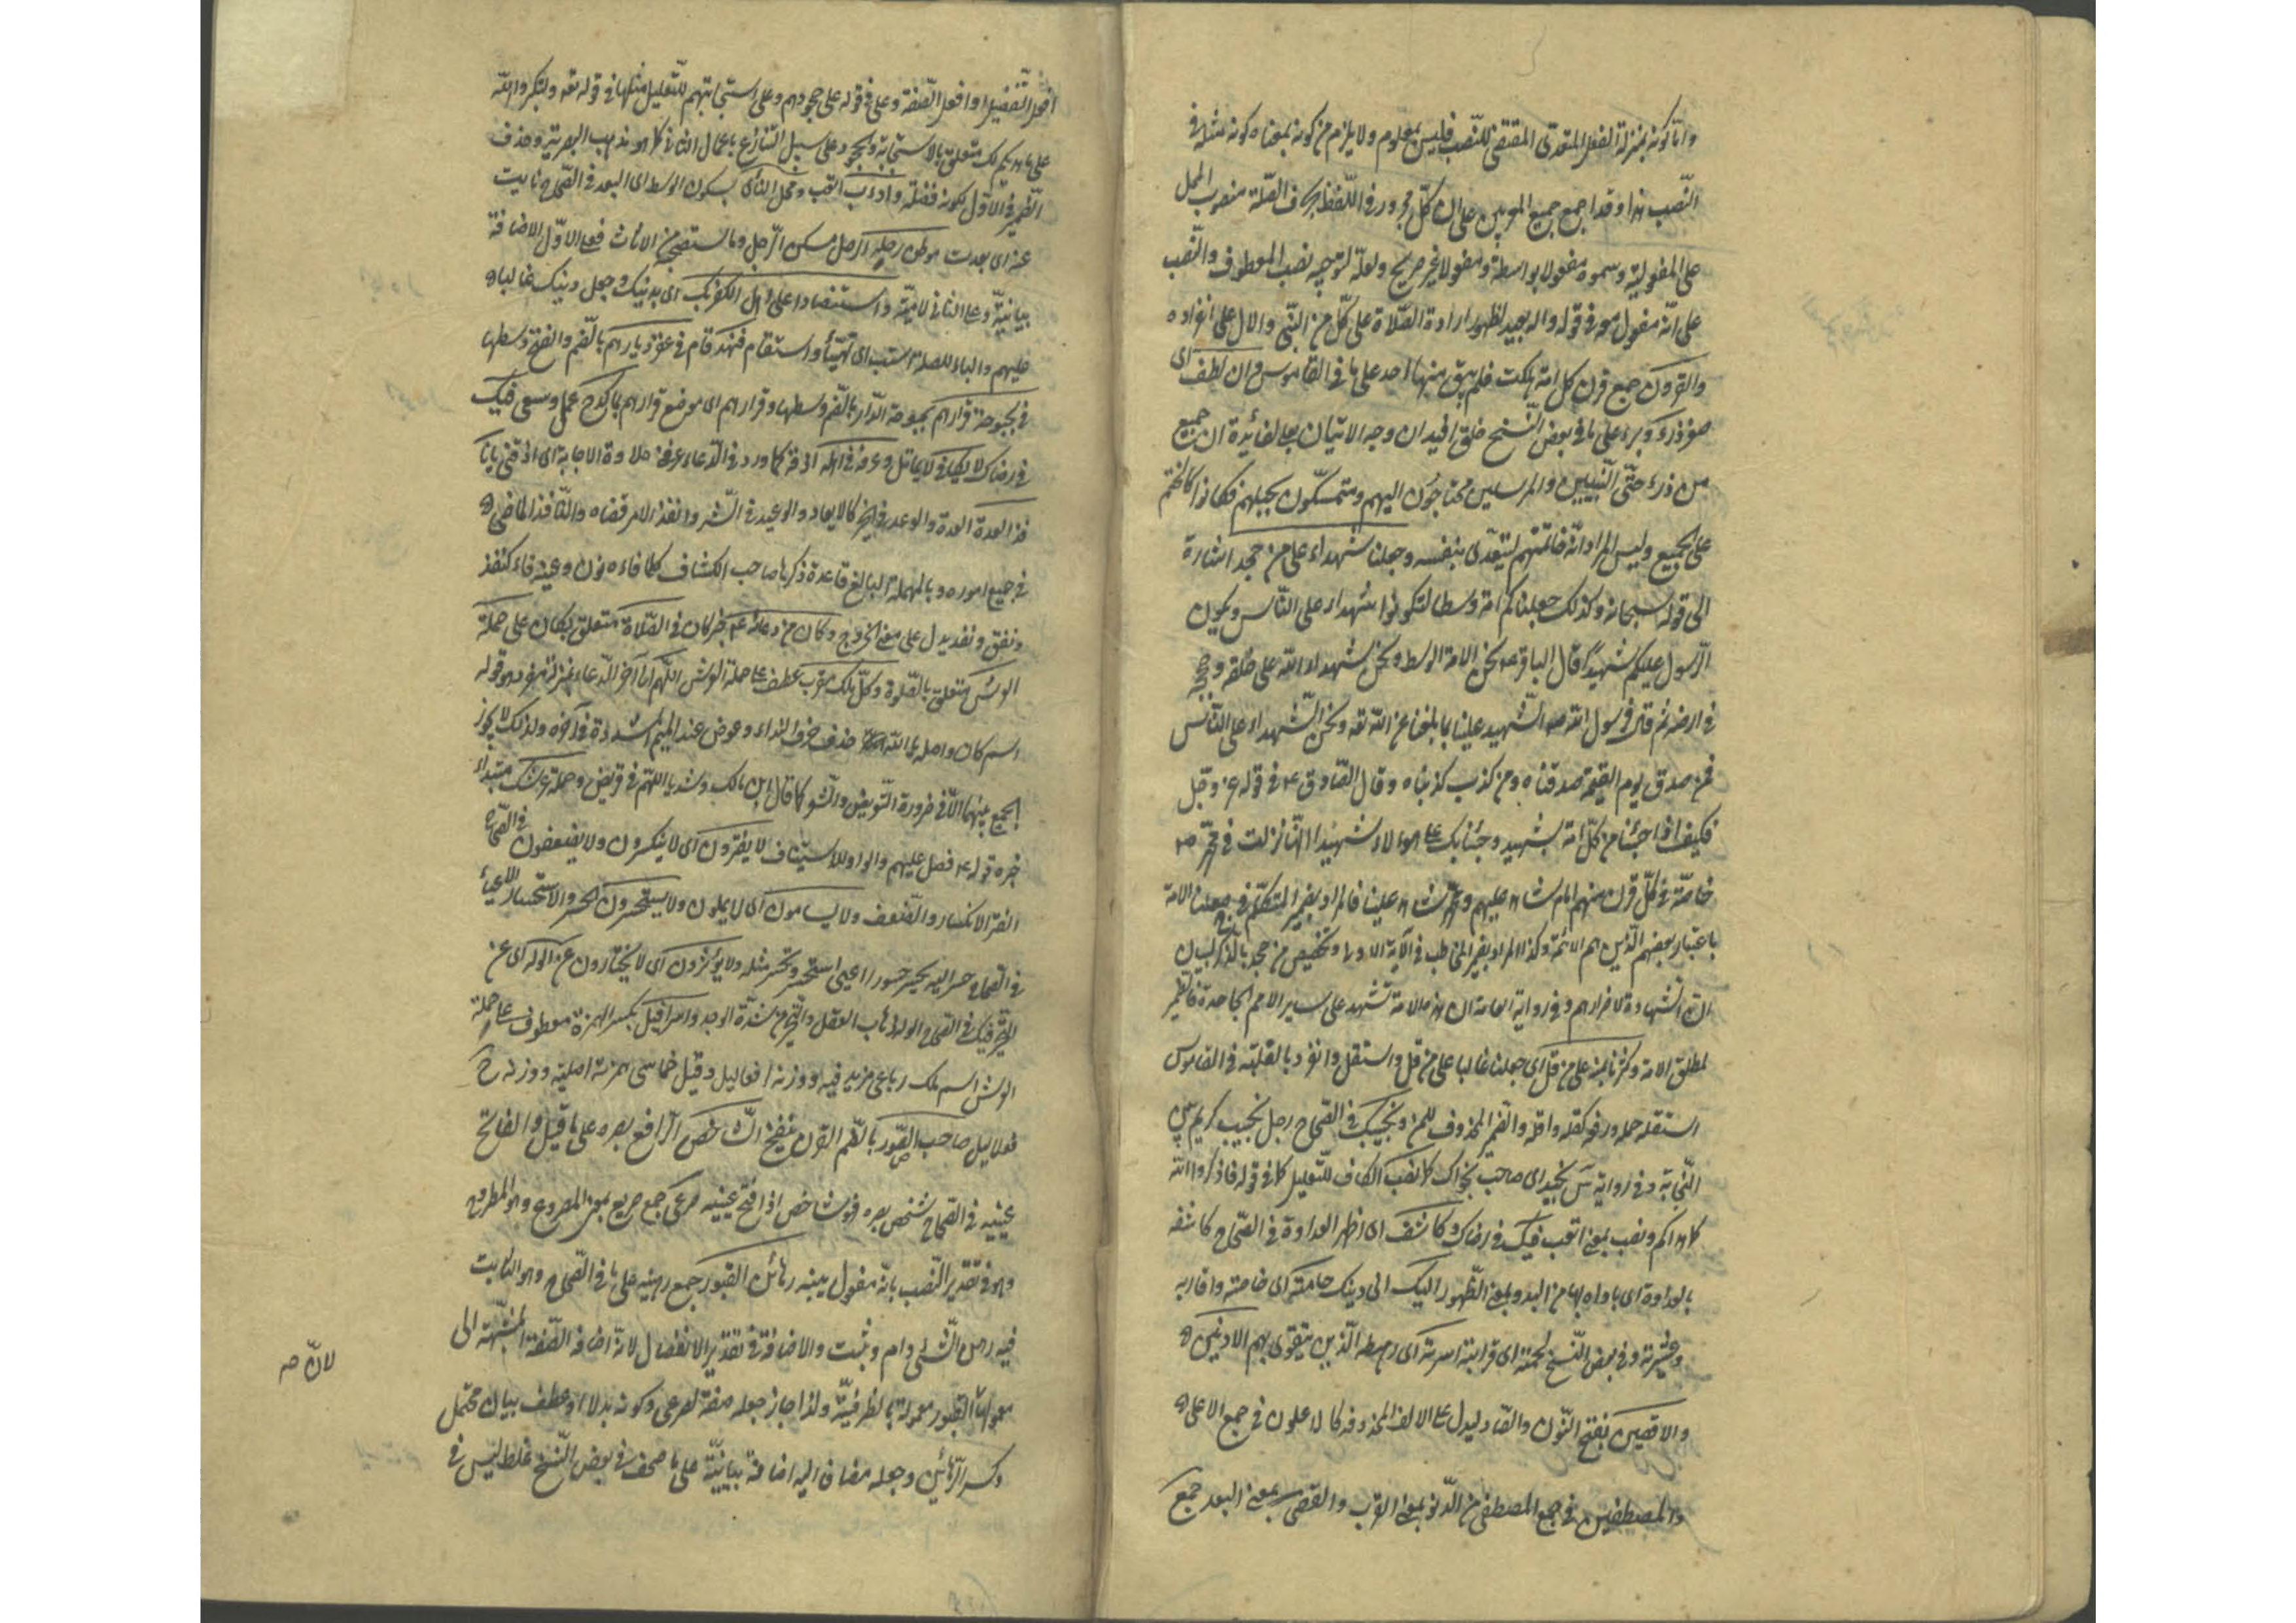 وامّا كونه بمنزلة الفعل المتعدّى المقتضى للنّصب فليس بمعلوم ولا يلزم من كونه بمعناه كونه مثله فى
النّصب هذا وقد اجمع جميع المعربين على ان كلّ مجرور فى اللّفظ بحرف الصّلة منصوب المحل
على المفعولية وسموه مفعولا بواسطة ومفعولا غير صريح ولعلّه لتوجيه نصب المعطوف والنّصب
على انّه مفعول معه فى قوله واله بعيد لظهور ارادة الصّلاة على كلّ من النّبى والال على انفراده
والقرون جمع قرن كل امة هلكت فلم يبق منها احد على ما فى القاموس وان لطف اى
صغر ذرء وبرء على ما فى بعض النّسخ خلق وجه الاتيان بها لفائدة ان جميع
من ذرء حتّى النّبيين والمرسلين محتاجون اليهم ومتمسّكون بحبلهم فكانوا كالختم
على الجميع وليس المراد انّه خاتمتهم ليتعدّى بنفسه وجعلنا شهداء على من جحد اشارة
الى قوله سبحانه وكذلك جعلناكم امة وسطا لتكونوا شهداء على النّاس ويكون
الرّسول عليكم شهيداً قال الباقر ع نحن الامة الوسط ونحن شهداء الله على خلقه وحججه
فى ارضه ثم قال فرسول الله ص الشّهيد علينا بما بلغنا عن الله تعه ونحن الشّهداء على النّاس
فمن صدق يوم القيمة صدقناه ومن كذب كذبناه وقال الصّادق ع فى قوله عز وجل
فكيف اذا جئنا من كلّ امة بشهيد وجئنا بك على هؤلاء شهيدا انّها نزلت فى امة محمّد ص
خاصّة فى كلّ قرن منهم امام شاهد عليهم ومحمّد شاهد علينا فالمراد بضمير المتكلّم فى جعلنا الامة
باعتبار بعضهم الّذين هم الائمة وكذا المراد بضمير المخاطب فى الآية الاولى وتخصيص من جحد بالذّكر لبيان
انّ الشّهادة لاضرارهم وفى رواية العامة ان هذه الامة تشهد على ساير الامم الجاحدة فالضّمير
لمطلق الامة وكثرنا بمنه على من قلّ اى جعلنا غالبا على من قل واستقل وانفرد بالقلة فى القاموس
استقله حمله ورفعه كقله واقله والضّمير المحذوف للمن ونجيبك فى الصّحاح رجل نجيب كريم بيّن
النّجابة وفى رواية س نجيك اى صاحب نجواك كما نصب الكاف للتّعليل كما فى قوله فاذكروا الله
كما هداكم ونصب بمعنى اتعب فيك فى رضاك وكاشف اى اظهر العداوة فى الصّحاح كاشفه
بالعداوة اى باداه بها من البدو بمعنى الظّهور اليك الى دينك حامته اى خاصته واقاربه
وعشيرته وفى بعض النّسخ لحمته اى قرابته اسرته اى رهطه الّذين يتقوّى بهم الادنين
والاقصين بفتح النّون والصّاد ليدل على الالف المحذوفة كالاعلون فى جمع الاعلى
والمصطفين فى جمع المصطفى من الدّنو بمعنى القرب والقصى بمعنى البعد جمع
افعل التّفضيل او افعل الصّفة وعلى فى قوله على جحودهم وعلى استجابتهم للتّعليل مثلها فى قوله تعه ولتكبروا الله
على ما هديكم لك متعلق بالاستجابة والجحود على سبيل التّنازع باعمال الثّانى كما هو مذهب البصرية وحذف
الضّمير فى الاوّل لكونه فضلة وادءب اتعب ومحل النّأى بسكون الوسط اى البعد فى الصّحاح نايت
عنه اى بعدت موطن رحله الرّحل مسكن الرّجل وما يستصحبه من الاثاث فعلى الاوّل الاضافة
بيانيّة وعلى الثّانى لاميّة واستنصارا على اهل الكفر بك اى بدينك وجعل دينك غالبا
عليهم والباء للصلة استتب اى تهيّأ واستقام فنهد قام فى عقر ديارهم بالضّم والفتح وسطها
فى بحبوحة قرارهم بحبوحة الدّار بالضّم وسطها وقرارهم اى موضع قرارهم بما كدح عمل وسعى فيك
فى رضاك لا يكافى لا يماثل وعرفه فى اهله اذقه كما ورد فى الدّعاء عرفنى حلاوة الاجابة اى اذقنى يا نا
فذ العدة العدة والوعد فى الخير كالايعاد والوعيد فى الشّر وانفذ الامر قضاه والنّافذ الماضى
فى جميع اموره وبالمهملة البالغ قاعدة ذكرها صاحب الكشاف كلما فاءه نون وعينه فاء كنفذ
ونفق ونفد يدل على معنى الخروج وكان من دعائه ع خبر كان فى الصّلاة متعلق بكان على حملة
العرش متعلق بالصّلوة وكلّ ملك مقرب عطف على حملة العرش اللّهم الى آخر الدّعاء بمنزلة مفرد وهو قوله
اسم كان واصله يا الله حذف حرف النداء وعوض عنه الميم المشددة فى آخره ولذلك لا يجوز
الجمع بينهما الّا فى ضرورة التّعويض والشّعر كما قال ابن مالك وشذ يا اللّهم فى قريض وحملة عرشك مبتدأ
خبره قوله ع فصل عليهم والواو للاستيناف لا يفترون اى لا ينكسرون ولا يضعفون فى الصّحاح
الفترة الانكسار والضّعف ولا يسامون اى لا يملون ولا يستحسرون الحسر والاستحسار الاعياء
فى الصّحاح حسر البعير يحسر حسورا اعيى استحسر وتحسر مثله ولا يؤثرون اى لا يختارون عن الوله اى عن
التّحير فيك فى الصّحاح والوله ذهاب العقل والتّحير من شدّة الوجد واسرافيل بكسر الهمزة معطوف على حملة
العرش اسم ملك رباعى مزيد فيه ووزنه افعاليل وقيل خماسى همزته اصلية ووزنه ح
فعلاليل صاحب الصّور بالضّم القرن ينفخ الشّاخص الرّافع بصره على ما قيل والفاتح
عينيه فى الصّحاح شخص بصره فهو شاخص اذا فتح عينيه صرعى جمع صريع بمعنى المصروع وهو المطروح
وهو فى تقدير النّصب بانّه مفعول ينبه رهائن القبور جمع رهينة على ما فى الصّحاح وهو الثّابت
فيه رهن الشّئ دام وثبت والاضافة فى تقدير الانفصال لانّه اضافة الصّفة المشبّهة الى
معمولها القبور معمولة بالظرفيّة ولذا جاز جعله صفة لصرعى وكونه بدلا او عطف بيان محتمل
وكسر الرّهائن وجعله مضافا اليه اضافة بيانيّة على ما صحف فى بعض النّسخ غلط ليس فى
لانّ صه